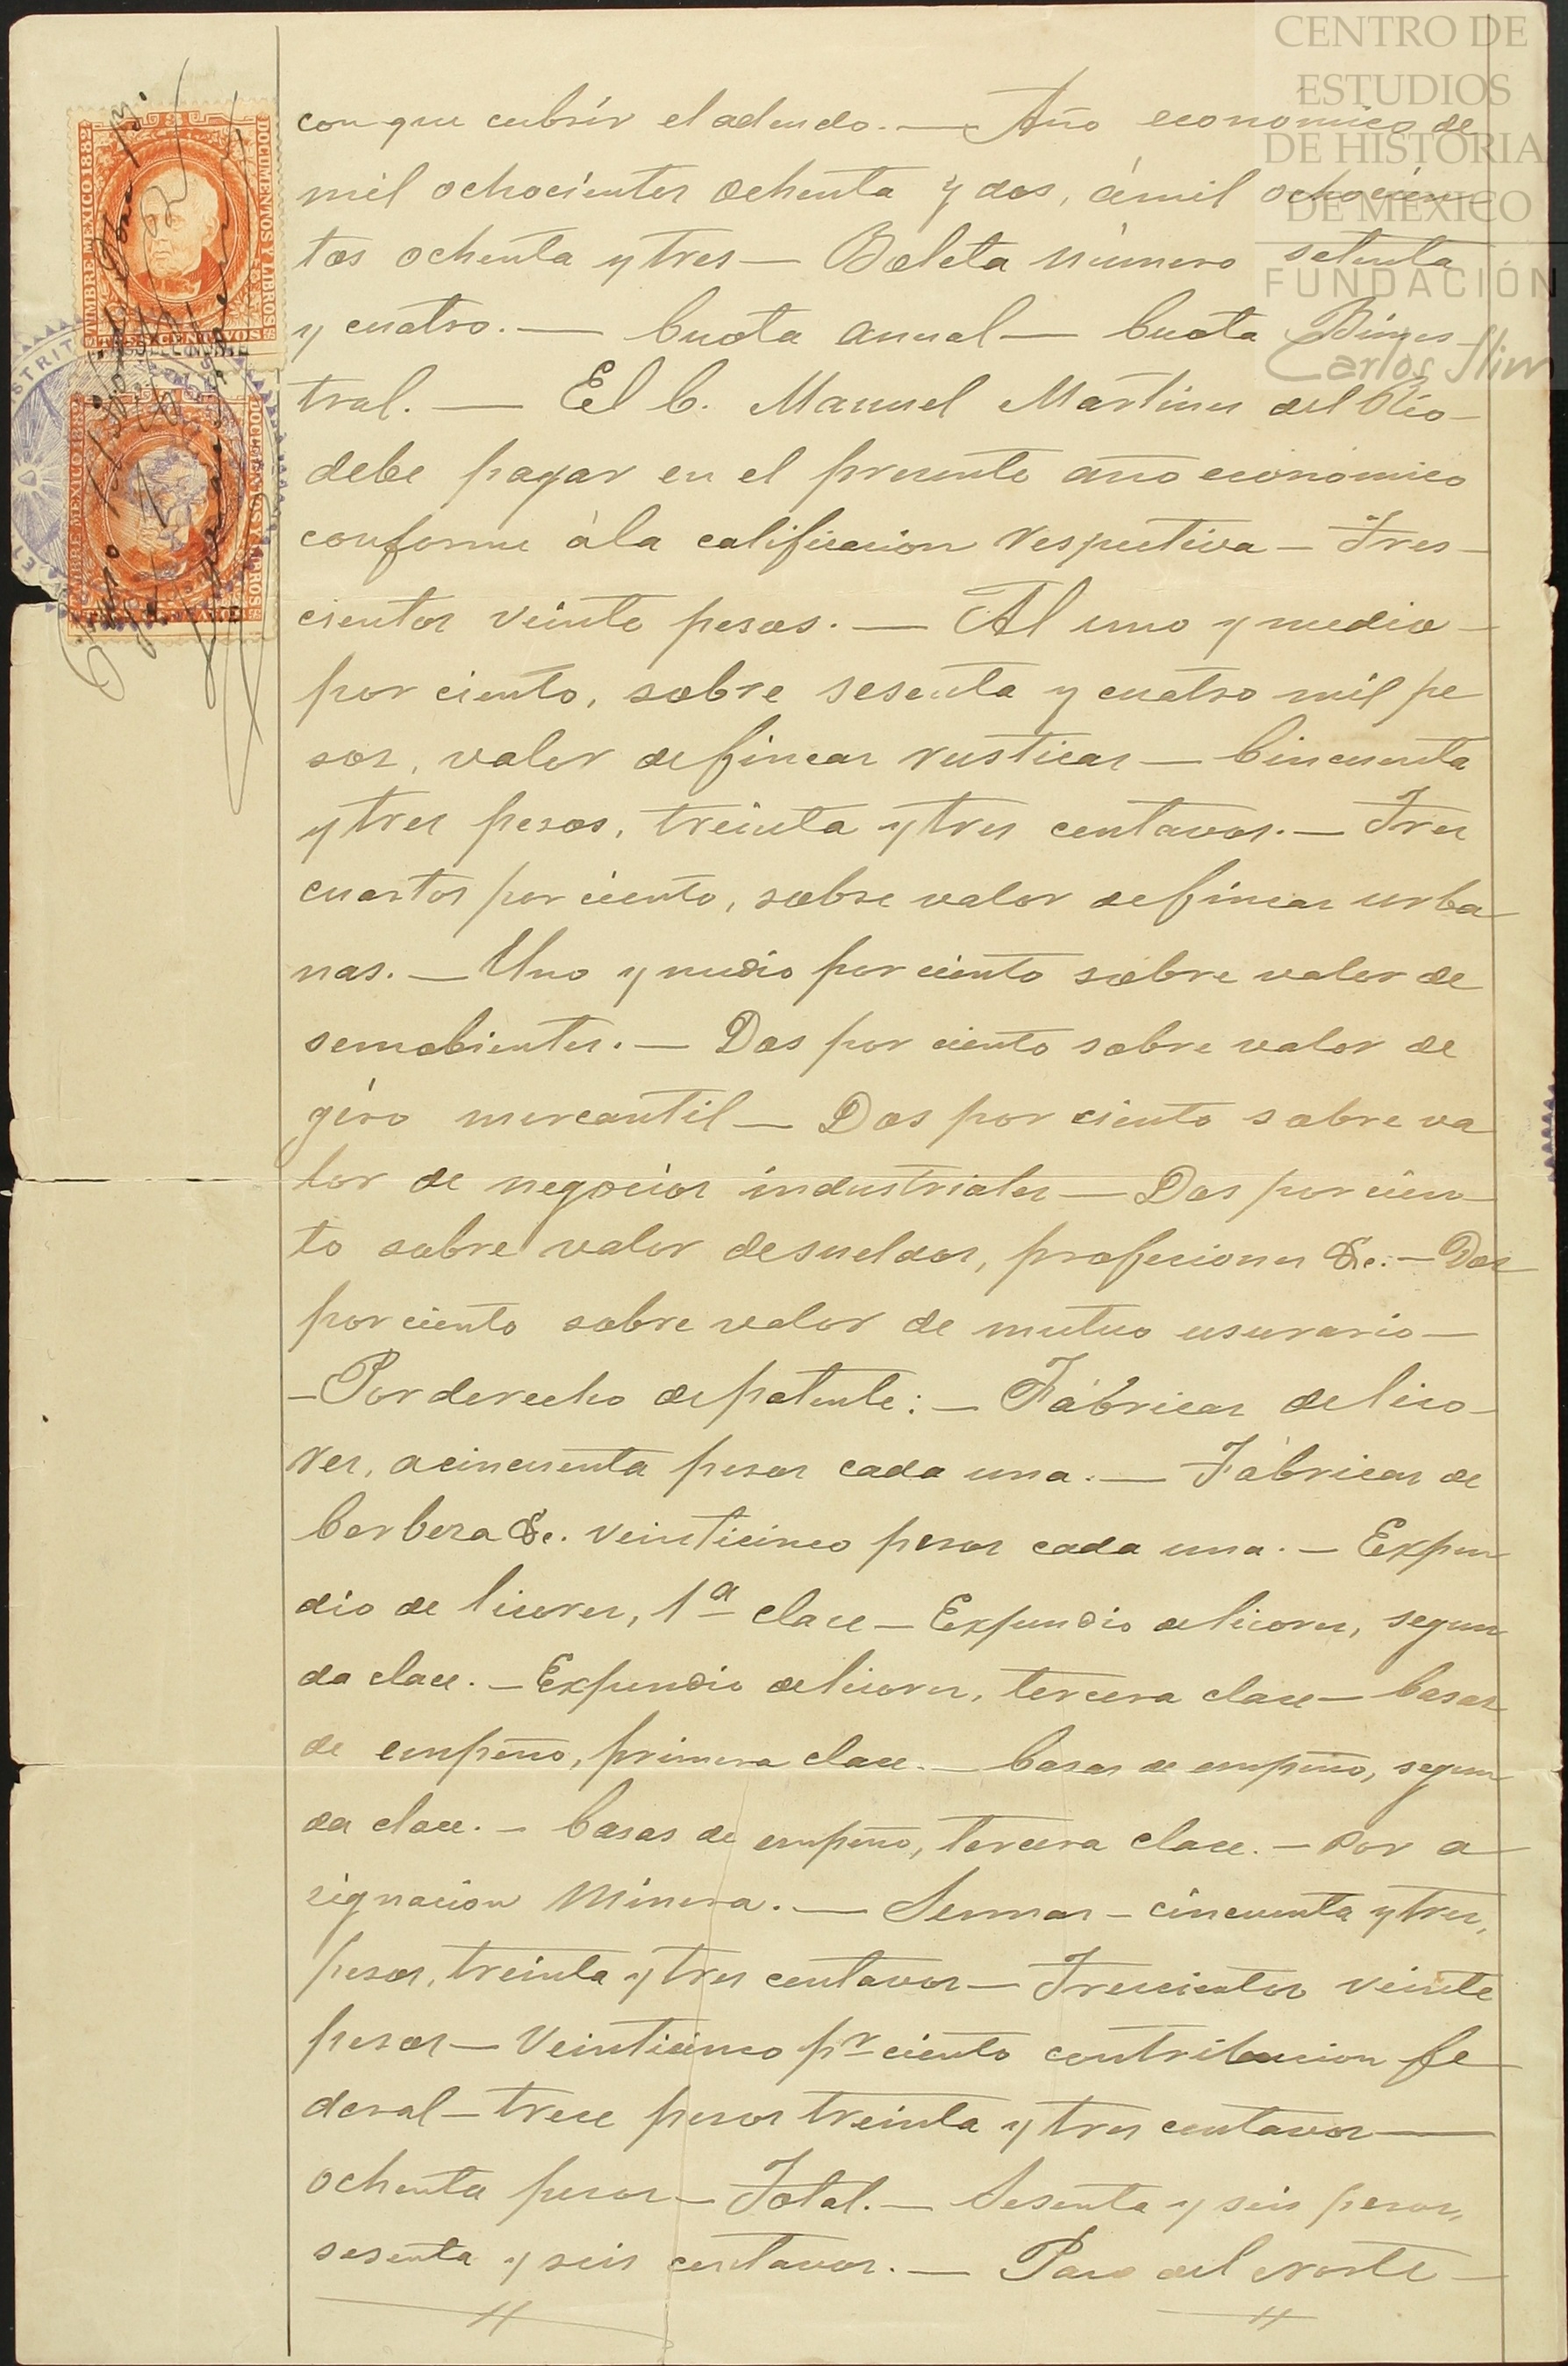 CENTRO DE
ESTUDIOS
DE HISTORIA
DE MÉXICO
FUNDACIÓN
Carlos Slim
TIMBRE MEXICO 1882
DOCUMENTOS Y LIBROS
CENTAVOS
TIMBRE MEXICO 1882
DOCUMENTOS Y LIBROS
con que cubrir el adeudo. — Año economico de
mil ochocientos ochenta y dos, á mil ochocien
tos ochenta y tres — Boleta número setenta
y cuatro. — Cuota anual — Cuota Bimes
tral. — El C. Manuel Martinez del Rio —
debe pagar en el presente año económico
conforme á la calificacion respectiva — Tres —
cientos veinte pesos. — Al uno y medio —
por ciento, sobre sesenta y cuatro mil pe
sos, valor de fincas rusticas — Cincuenta
y tres pesos, treinta y tres centavos. — Tres
cuartos por ciento, sobre valor de fincas urba
nas. — Uno y medio por ciento sobre valor de
semobientes. — Dos por ciento sobre valor de
giro mercantil — Dos por ciento sobre va
lor de negocios industriales — Dos por cien —
to sobre valor de sueldos, profeciones &c. — Dos
por ciento sobre valor de mutuo usurario —
— Por derecho de patente: — Fábricas de lico —
res, a cincuenta pesos cada una. — Fábricas de
Cerbeza &c. veinticinco pesos cada una. — Expen
dio de licores, 1ª clase — Expendio de licores, segun
da clase. — Expendio de licores, tercera clase — Casas
de empeño, primera clase. — Casas de empeño, segun
da clase. — Casas de empeño, tercera clase. — Por a
signacion Minera. — Sumas — cincuenta y tres,
pesos, treinta y tres centavos — Trescientos veinte
pesos — Veinticinco pr ciento contribucion fe
deral — trece pesos treinta y tres centavos —
ochenta pesos — Total. — Sesenta y seis pesos,
sesenta y seis centavos. — Paso del Norte —